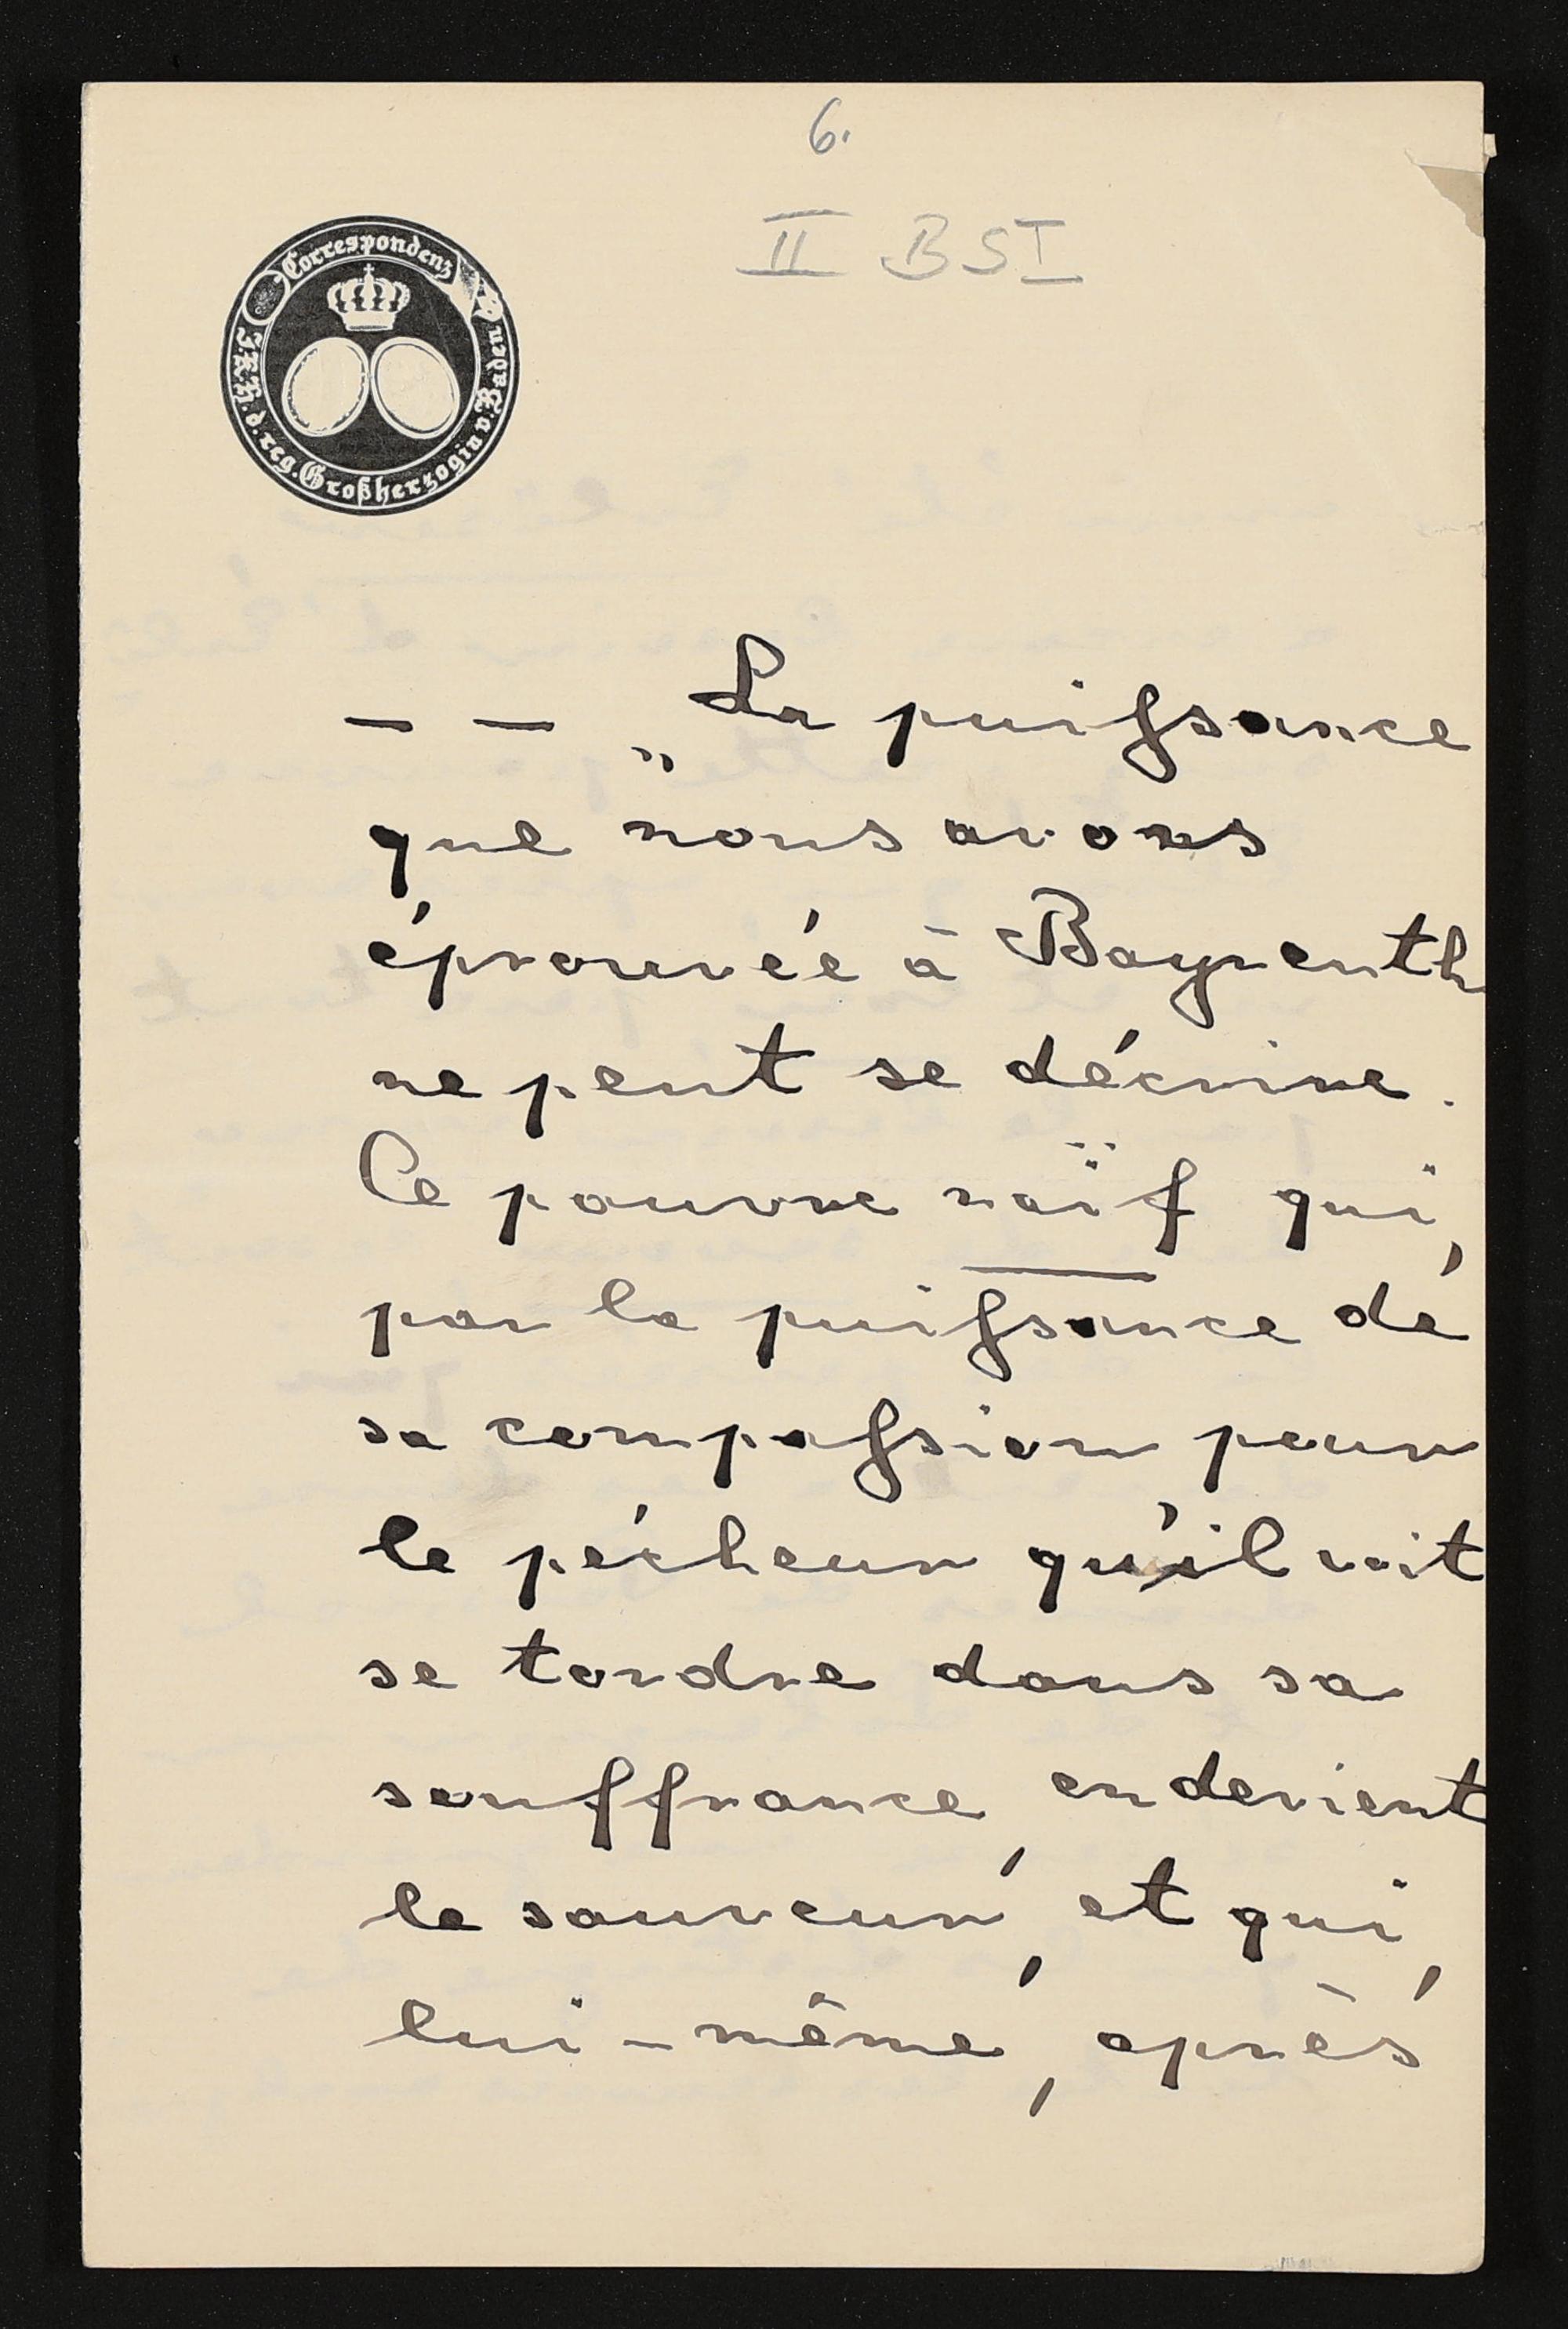 6.
II BSI
Correspondenz
I.K.H. d. reg. Großherzogin v. Baden
– – „La puiſsance
que nous avons
éprouvée à Bayreuth
ne peut se décrire.
Ce pauvre naïf qui,
par la puiſsance de
sa compaſsion pour
le pécheur qu'il voit
se tordre dans sa
souffrance, en devient
le sauveur, et qui,
lui-même, après